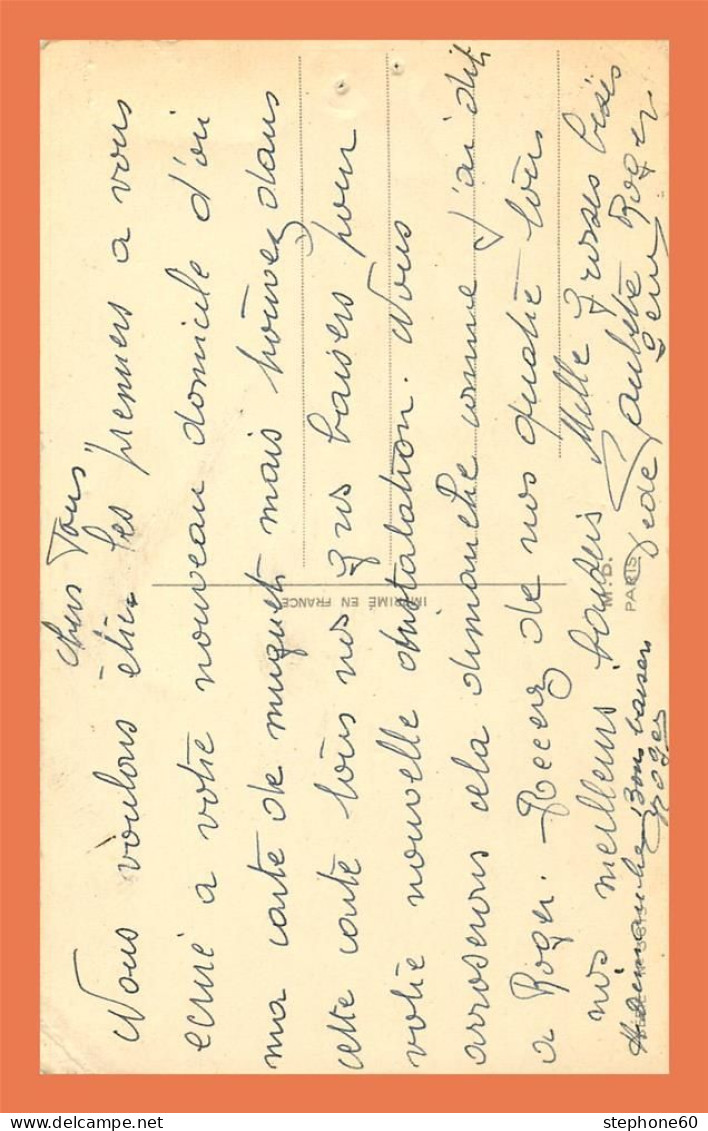 Chers Tous
Nous voulons être les premiers a vous
ecrire a votre nouveau domicile d'où
ma carte de muguets mais trouvez dans
cette carte tous nos gros baisers pour
votre nouvelle instalation. Nous
arroserons cela dimanche comme j'ai dit
a Roger. Recevez de nos quatre tous
nos meilleurs baisers Mille grosses bises
Dédé Paulette Roger
A dimanche Bons baisers
Roger
IMPRIMÉ EN FRANCE
M.D.
PARIS
stephone60